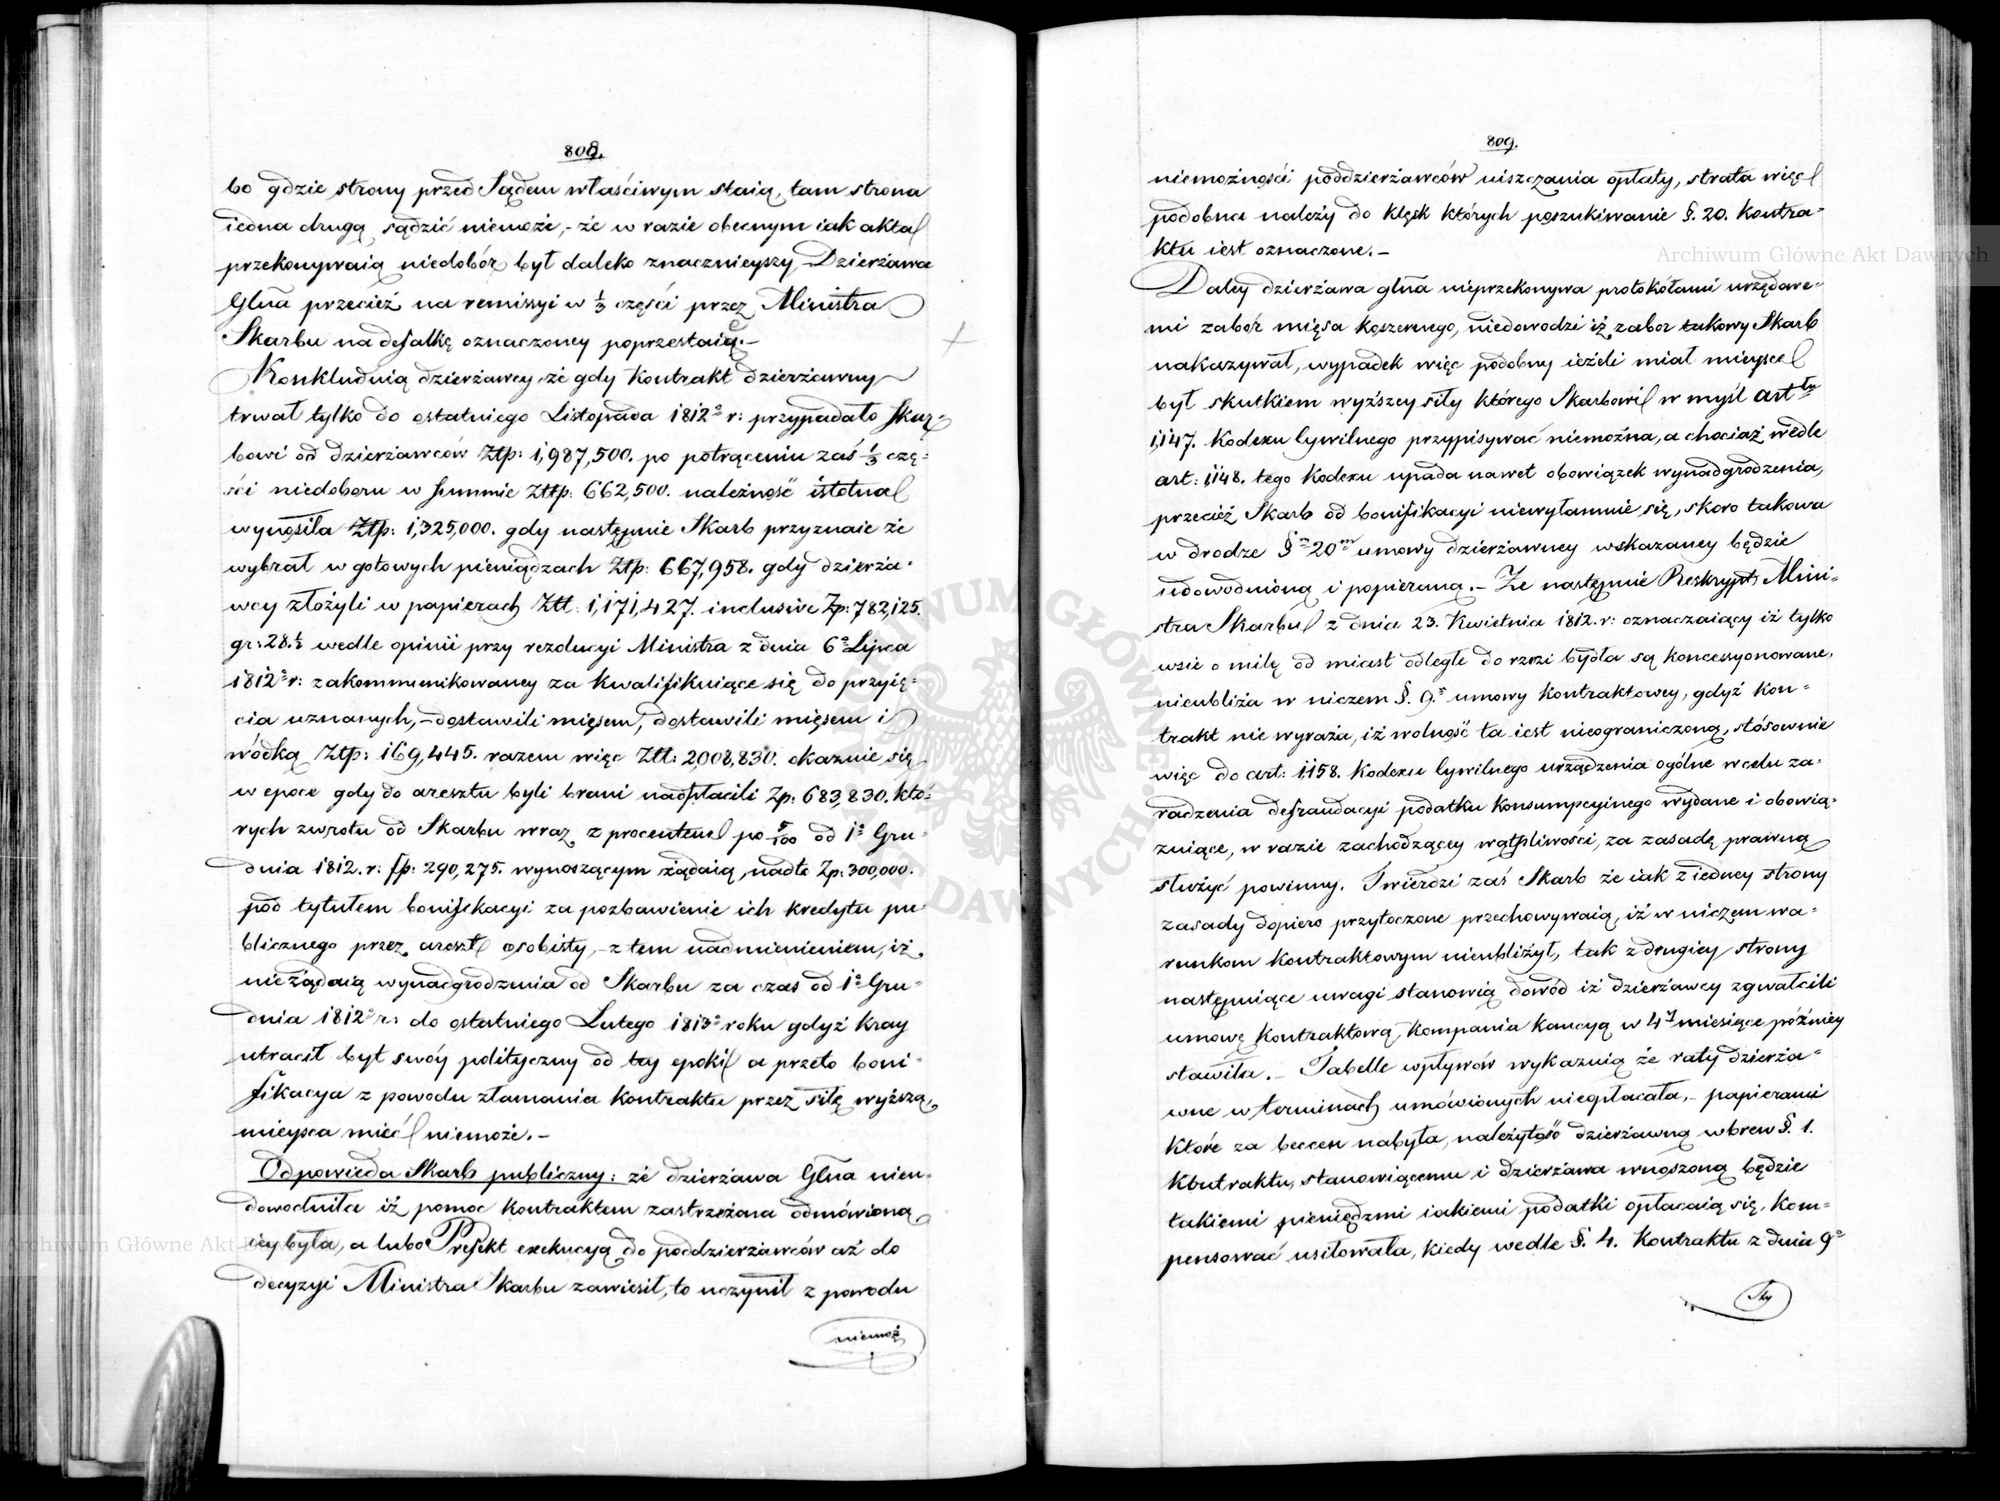 808.
bo gdzie strony przed Sądem właściwym staią, tam strona
iedna drugą sądzić niemoże,- że w razie obecnym iak akta
przekonywaią niedobór był daleko znacznieyszy, Dzierżawa
Glna przecież na remissyi w 1/3 części przez Ministra
Skarbu na defalkę oznaczoney poprzestaią.-
Konkluduią dzierżawcy, że gdy Kontrakt dzierżawny
trwał tylko do ostatniego Listopada 1812º r: przypadało Skar-
bowi od dzierżawców Ztp: 1,987,500. po potrąceniu zaś 1/3 czę-
ści niedoboru w summie Zttp: 662,500. należność istotna
wynosiła Ztp: 1,325,000. gdy następnie Skarb przyznaie że
wybrał w gotowych pieniądzach Ztp: 667,958. gdy dzierża-
wcy złożyli w papierach Ztt: 1,171,427. inclusive Zp: 782,125.
gr: 28.½ wedle opinii przy rezolucyi Ministra z dnia 6º Lipca
1812º r: zakommunikowaney za kwalifikuiące się do przyię-
cia uznanych,- dostawili mięsem, dostawili mięsem i
wódką Ztp: 169,445. razem więc Ztt: 2,008,830. okazuie się
w epoce gdy do aresztu byli brani nadpłacili Zp: 683,830. któ-
rych zwrotu od Skarbu wraz z procentem po 5/100 od 1º Gru-
dnia 1812. r: fp: 290,275. wynoszącym żądaią, nadto Zp: 300,000.
pod tytułem bonifikacyi za pozbawienie ich kredytu pu-
blicznego przez areszt osobisty,- z tem nadmienieniem, iż
nieżądaią wynadgrodzenia od Skarbu za czas od 1º Gru-
dnia 1812º r: do ostatniego Lutego 1813º roku gdyż Kray
utracił byt swóy polityczny od tey epoki a przeto boni-
fikacya z powodu złamania Kontraktu przez siłę wyższą,
mieysca mieć niemoże.-
Odpowieda Skarb publiczny: że dzierżawa Glna nieu-
dowodniła iż pomoc Kontraktem zastrzeżona odmówioną
iey była, a lubo Prefekt exekucyą do poddzierżawców aż do
decyzyi Ministra Skarbu zawiesił, to uczynił z powodu
niemoż
809.
niemożności poddzierżawców uiszczania opłaty, strata więc
podobna należy do klęsk których poszukiwanie §. 20. Kontra-
ktu iest oznaczone.-
Daley dzierżawa glna nieprzekonywa protokółami urzędowe-
mi zabór mięsa koszernego, niedowodzi iż zabor takowy Skarb
nakazywał, wypadek więc podobny ieżeli miał mieysce
był skutkiem wyższey siły którego Skarbowi w myśl artłu
1,147. Kodexu Cywilnego przypisywać niemożna, a chociaż wedle
art: 1,148. tego Kodexu upada nawet obowiązek wynadgrodzenia,
przecież Skarb od bonifikacyi niewyłamuie się, skoro takowa
w drodze § 20 umowy dzierżawney wskazaney będzie
udowodnioną i popieraną.- Że następnie Reskrypt Mini-
stra Skarbu z dnia 23. Kwietnia 1812. r: oznaczaiący iż tylko
wsie o milę od miast odległe do rzezi bydła są koncessyonowane,
nieubliża w niczem §. 9º umowy kontraktowey, gdyż Kon-
trakt nie wyraża, iż wolność ta iest nieograniczoną, stósownie
więc do art: 1158. Kodexu Cywilnego urządzenia ogólne w celu za-
radzenia defraudacyi podatku konsumpcyinego wydane i obowią-
zuiące, w razie zachodzącey wątpliwości, za zasadę prawną
służyć powinny. Twierdzi zaś Skarb że iak z iedney strony
zasady dopiero przytoczone przechowywaią, iż w niczem wa-
runkom kontraktowym nieubliżył, tak z drugiey strony
następuiące uwagi stanowią dowód iż dzierżawcy zgwałcili
umowę kontraktową, Kompania kaucyą w 4y miesiące późniey
stawiła.- Tabelle wpływów wykazuią że raty dzierża-
wne w terminach umówionych nieopłacała,- papierami
które za bezcen nabyła, należytość dzierżawną wbrew §. 1.
Kontraktu, stanowiącemu i dzierżawa wnoszoną będzie
takiemi pieniędzmi iakiemi podatki opłacaią się, kom-
pensować usiłowała, kiedy wedle §. 4. Kontraktu z dnia 9º